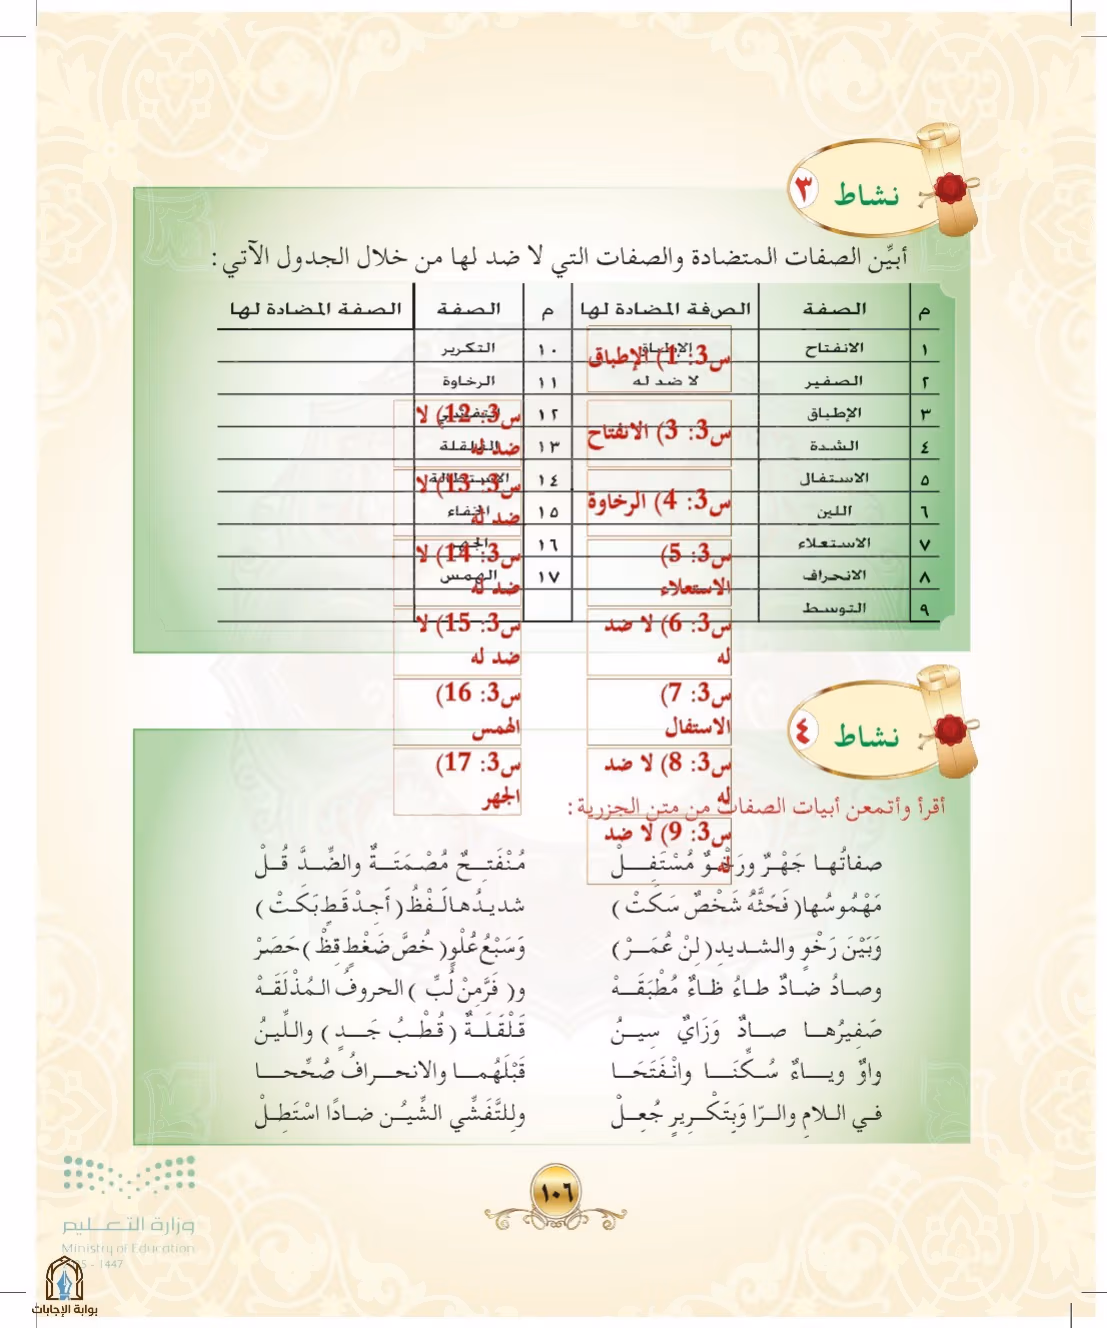 نشاط ٣
أبيِّن الصفات المتضادة والصفات التي لا ضد لها من خلال الجدول الآتي:
م الصفة الصفة المضادة لها م الصفة الصفة المضادة لها
١ الانفتاح الإطباق ١٠ التكرير
٢ الصفير لا ضد له ١١ الرخاوة
٣ الإطباق ١٢ التفشي
٤ الشدة ١٣ القلقلة
٥ الاستفال ١٤ الاستطالة
٦ اللين ١٥ الخفاء
٧ الاستعلاء ١٦ الجهر
٨ الانحراف ١٧ الهمس
٩ التوسط
س3: 1) الإطباق
س3: 3) الانفتاح
س3: 4) الرخاوة
س3: 5)
الاستعلاء
س3: 6) لا ضد
له
س3: 7)
الاستفال
س3: 8) لا ضد
له
س3: 9) لا ضد
له
س3: 12) لا
ضد له
س3: 13) لا
ضد له
س3: 14) لا
ضد له
س3: 15) لا
ضد له
س3: 16)
الهمس
س3: 17)
الجهر
نشاط ٤
أقرأ وأتمعن أبيات الصفات من متن الجزرية:
صفاتُها جَهْرٌ ورَخْوٌ مُسْتَفِلْ مُنْفَتِحٌ مُصْمَتَةٌ والضِّدَّ قُلْ
مَهْمُوسُها( فَحَثَّهُ شَخْصٌ سَكَتْ ) شديدُها لَفْظُ ( أَجِدْ قَطٍ بَكَتْ )
وَبَيْنَ رَخْوٍ والشديدِ( لِنْ عُمَرْ ) وَسَبْعُ عُلْوٍ( خُصَّ ضَغْطٍ قِظْ ) حَصَرْ
وصادُ ضادٌ طاءُ ظاءٌ مُطْبَقَهْ و( فَرَّ مِنْ لُبِّ ) الحروفُ المُذْلَقَهْ
صَفِيرُها صادٌ وَزَايٌ سِينُ قَلْقَلَةٌ ( قُطْبُ جَدٍ ) واللِّينُ
واوٌ وياءٌ سُكِّنَا وانْفَتَحَا قَبْلَهُما والانحرافُ صُحِّحا
في اللامِ والرّا وَبِتَكْرِيرٍ جُعِلْ وللتَّفَشِّي الشِّينُ ضادًا اسْتَطِلْ
١٠٦
وزارة التعليم
Ministry of Education
5 - 1447
بوابة الإجابات